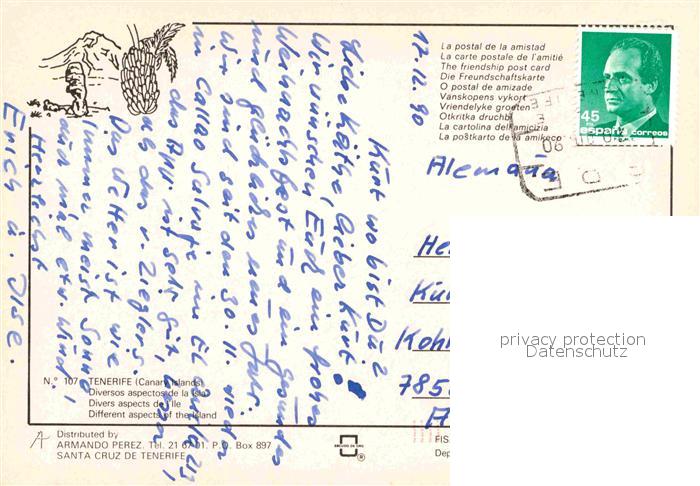 12.12.90
Kurt wo bist Du?
Liebe Käthe, lieber Kurt!
Wir wünschen Euch ein frohes
Weihnachtsfest und ein gesundes
und glückliches neues Jahr.
Wir sind seit dem 30.11. wieder
in Callao Salvaje im El
das App. ist sehr gut,
als das v. Ziegler's.
Das Wetter ist wie
immer meist Sonne
dann mal etw. Wind,
Herzlichst
Erich u. Ilse.
La postal de la amistad
La carte postale de l'amitié
The friendship post card
Die Freundschaftskarte
O postal de amizade
Vanskopens vykort
Vriendelyke groeten
Otkritka druchbi
La cartolina dell'amicizia
La poŝtkarto de la amikeco
45
españa correos
Alemaña
He
Kur
Kohl
785
privacy protection
Datenschutz
N.º 107 TENERIFE (Canary Islands)
Diversos aspectos de la Isla
Divers aspects de l'Ile
Different aspects of the Island
Distributed by
ARMANDO PEREZ. Tel. 21 67 01. P.O. Box 897
SANTA CRUZ DE TENERIFE
ESCUDO DE ORO
®
FIS
Dep